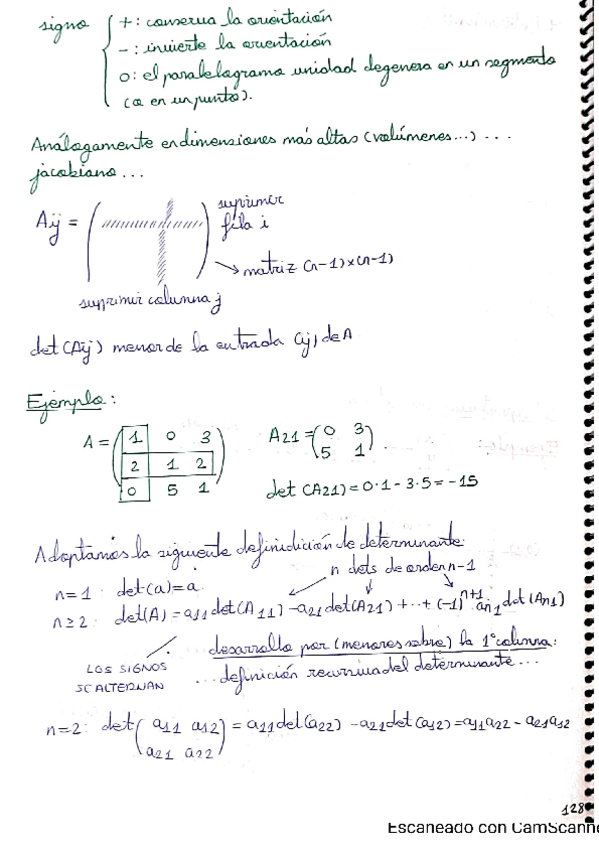 signo { + : conserva la orientación
- : invierte la orientación
0 : el paralelogramo unidad degenera en un segmento
(o en un punto).
Análogamente en dimensiones más altas (volúmenes...) ...
jacobiano ...
suprimir
Aij = ( ) fila i
→ matriz (n-1)×(n-1)
suprimir columna j
det(Aij) menor de la entrada (ij) de A
Ejemplo:
A = ( 1 0 3
2 1 2
0 5 1 )
A21 = ( 0 3
5 1 ).
det (A21) = 0·1 - 3·5 = -15
Adoptamos la siguiente definidición de determinante:
n dets de orden n-1
n=1: det(a)=a
n≥2: det(A) = a11 det(A11) - a21 det(A21) + ... + (-1)^n+1 an1 det(An1)
desarrollo por (menores sobre) la 1ª columna:
LOS SIGNOS
SE ALTERNAN
... definición recursiva del determinante ...
n=2: det( a11 a12
a21 a22 ) = a11 det(a22) - a21 det(a12) = a11a22 - a21a12
128
Escaneado con CamScanne